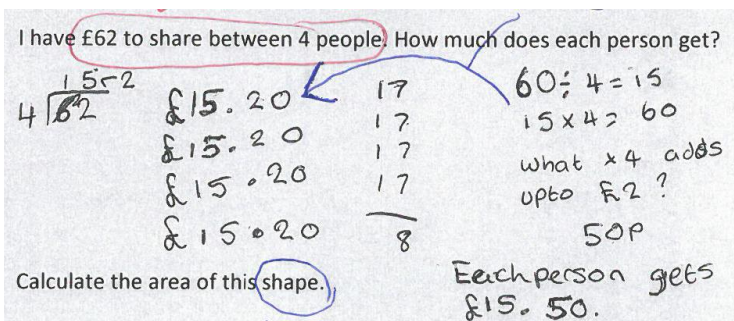 I have £62 to share between 4 people. How much does each person get?
15r2
4 62
£15.20
£15.20
£15.20
£15.20
17
17
17
17
8
60÷4=15
15x4=60
what x4 adds
upto £2?
50P
Each person gets
£15.50.
Calculate the area of this shape.